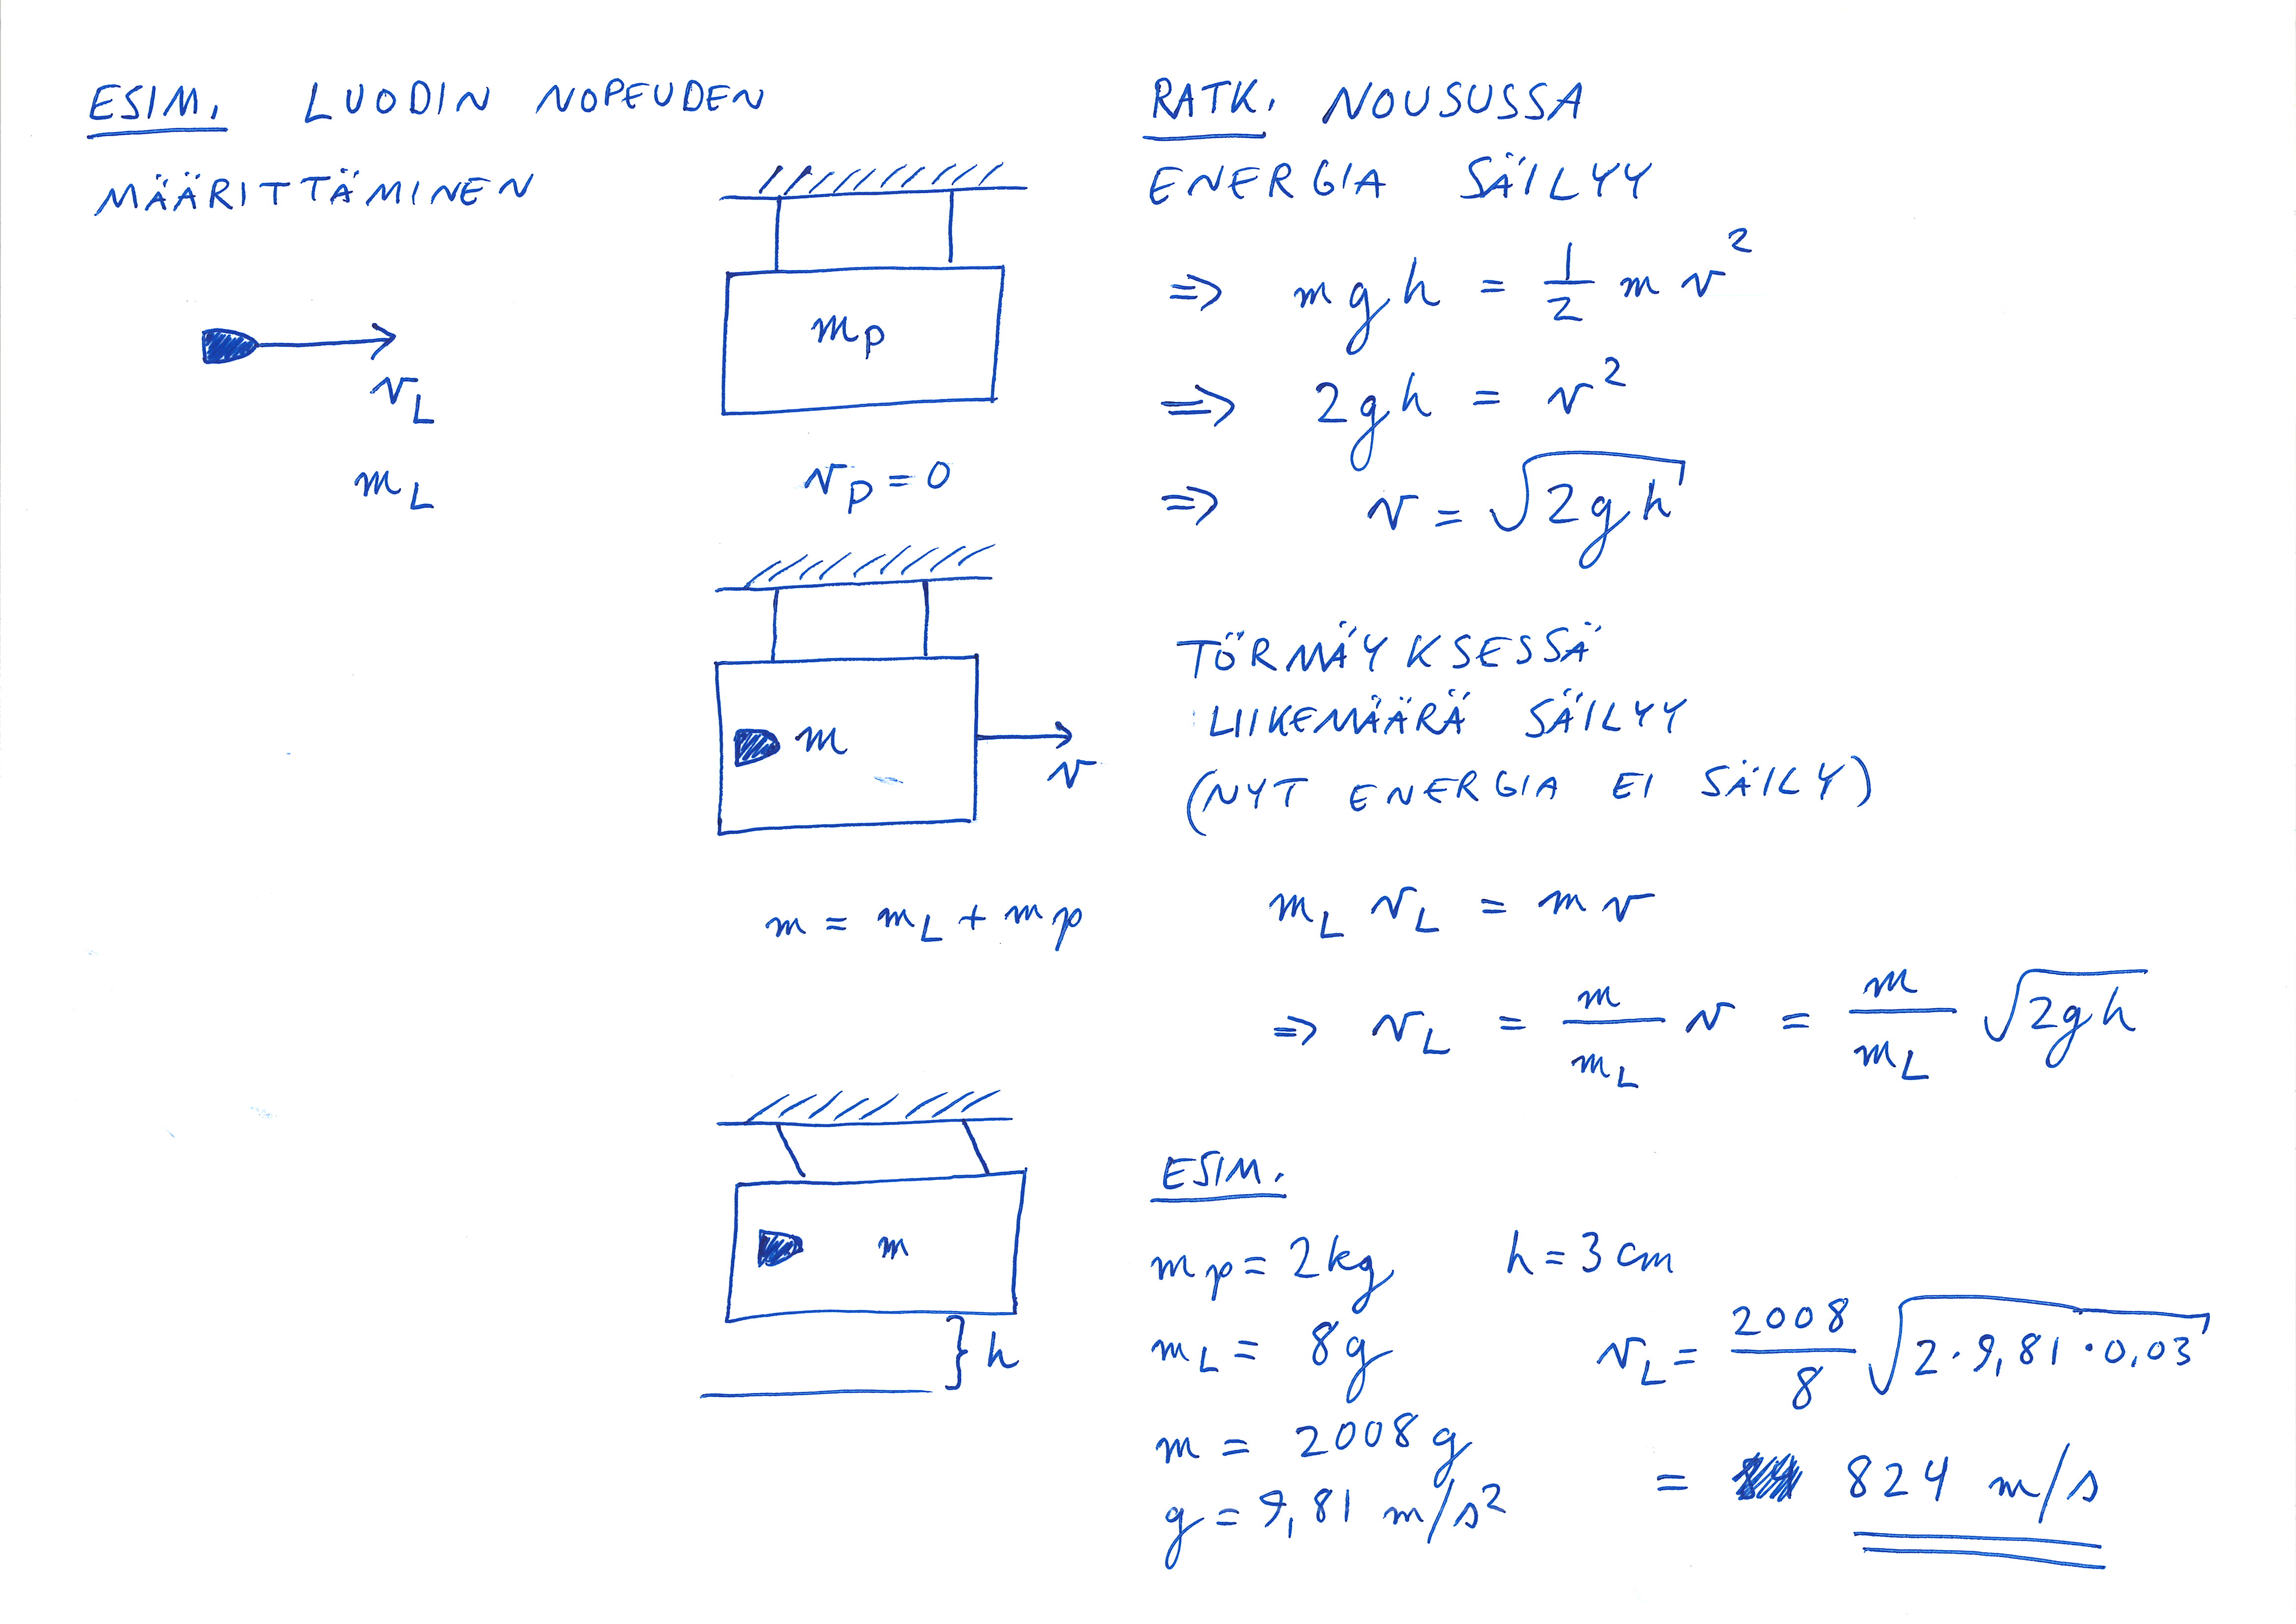 ESIM. LUODIN NOPEUDEN
MÄÄRITTÄMINEN
v_L
m_L
m_p
v_p = 0
m
v
m = m_L + m_p
m
h
RATK. NOUSUSSA
ENERGIA SÄILYY
⇒ mgh = 1/2 m v²
⇒ 2gh = v²
⇒ v = √2gh
TÖRMÄYKSESSÄ
LIIKEMÄÄRÄ SÄILYY
(NYT ENERGIA EI SÄILY)
m_L v_L = m v
⇒ v_L = m/m_L v = m/m_L √2gh
ESIM.
m_p = 2kg h = 3 cm
m_L = 8g v_L = 2008/8 √2·9,81·0,03
m = 2008 g
= 824 m/s
g = 9,81 m/s²